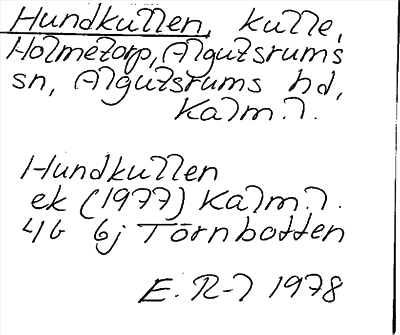 Hundkullen, kulle,
Holmetorp, Algutsrums
sn, Algutsrums hd,
Kalm.l.
Hundkullen
ek (1977) Kalm.l.
4G 6j Törnbotten
E. R-l 1978